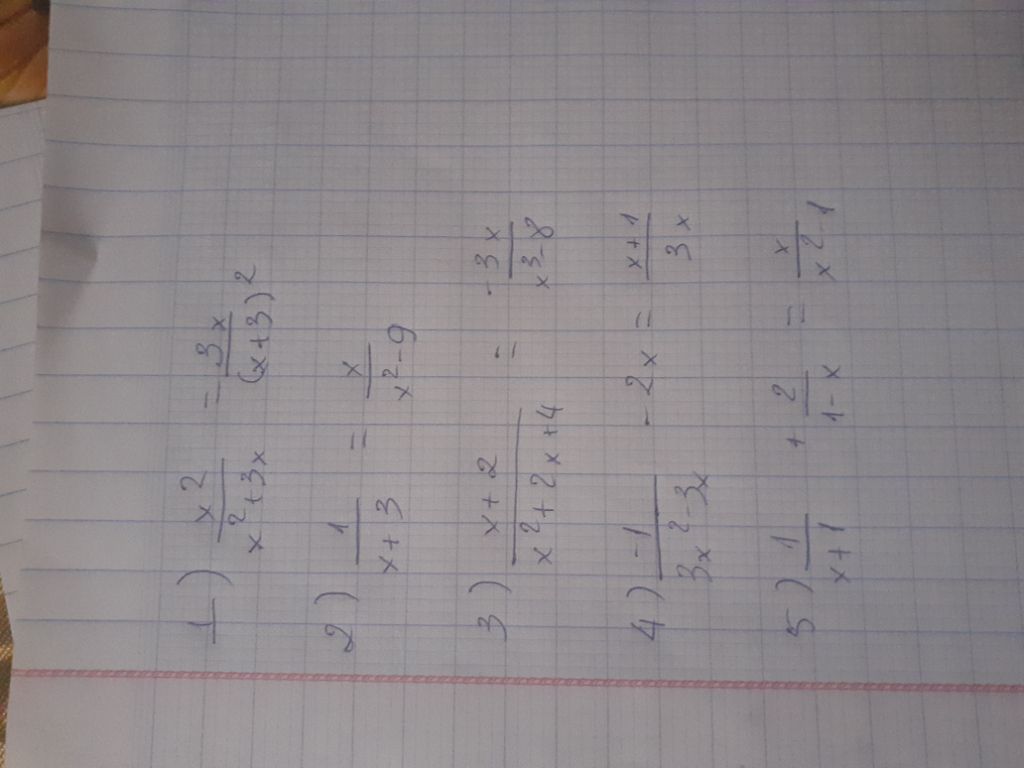 1) x2/(x²+3x) = 3x/(x+3)²
2) 1/(x+3) = x/(x²-9)
3) (x+2)/(x²+2x+4) = -3x/(x³-8)
4) -1/(3x²-3x) -2x = (x+1)/(3x)
5) 1/(x+1) + 2/(1-x) = x/(x²-1)